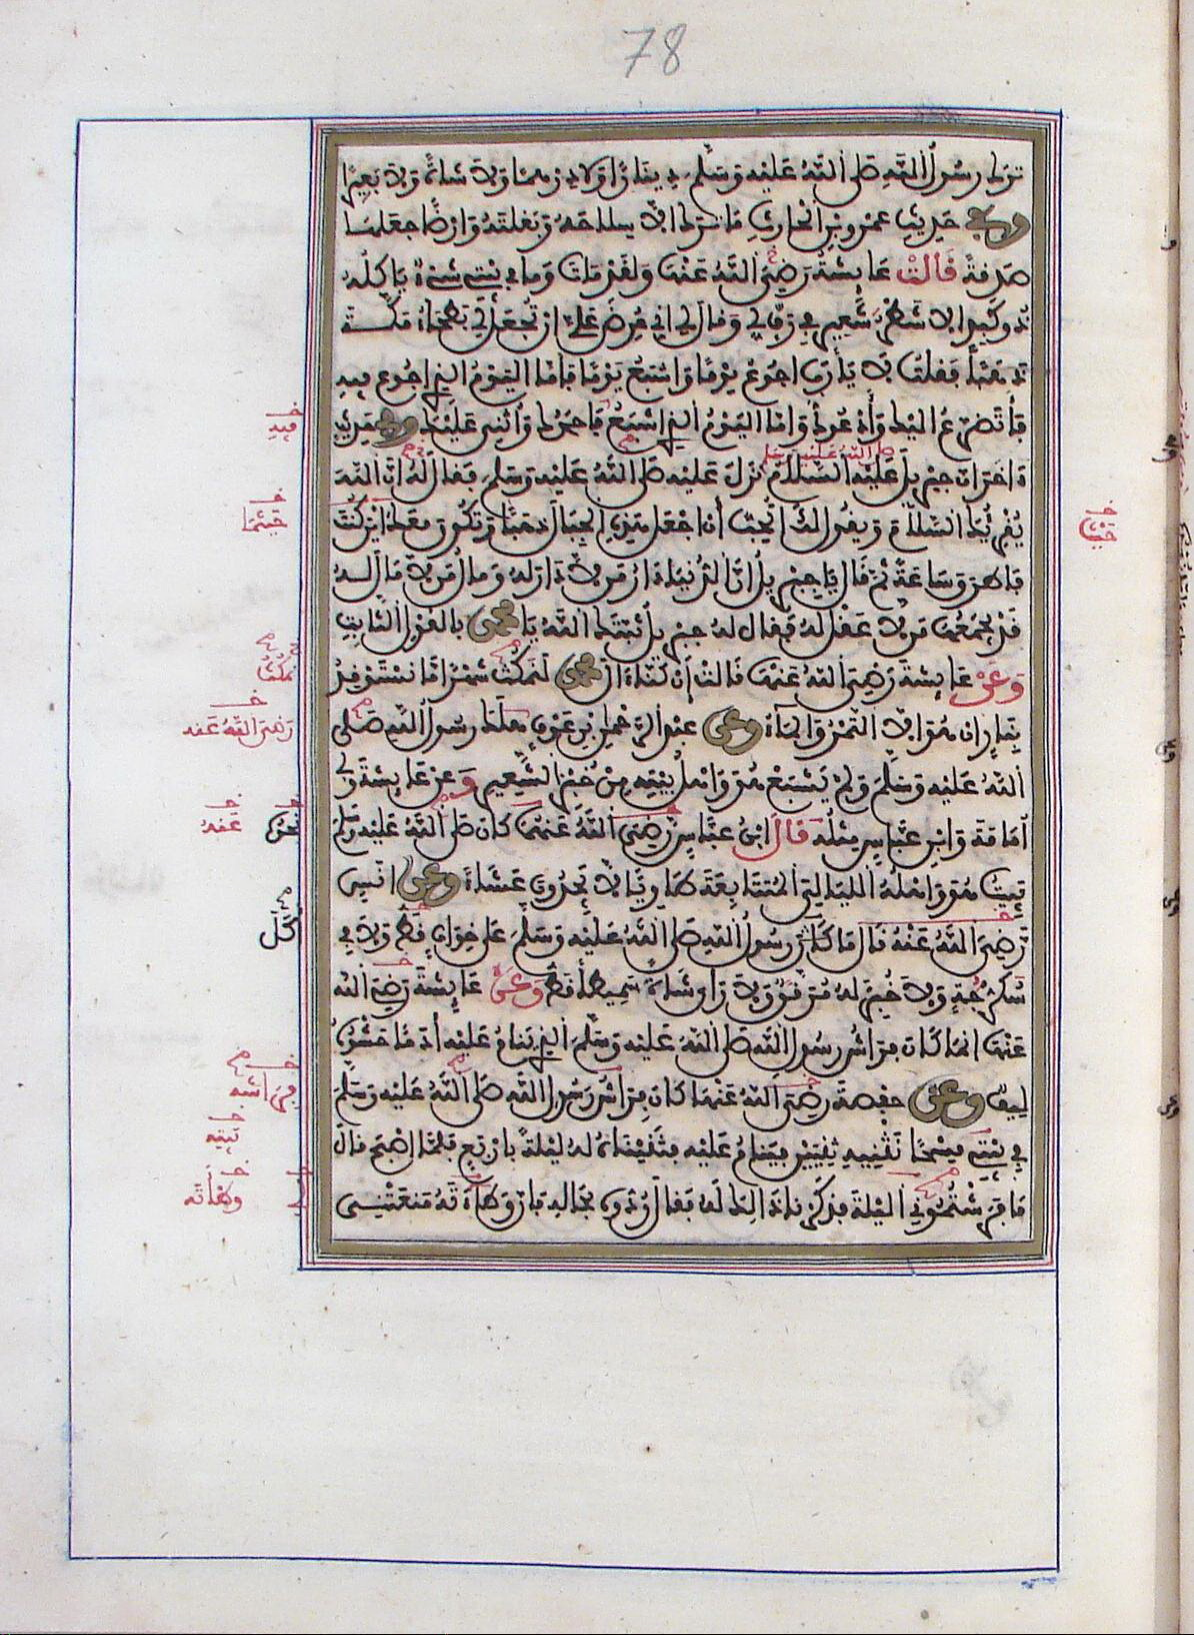 78
ترك رسول الله صلى الله عليه وسلم دينارا ولا درهما ولا شاة ولا بعيرا
وفي حديث عمرو بن الحارث ما ترك الا سلاحه وبغلته وارضا جعلها
صدقة قالت عايشة رضي الله عنها ولقد مات وما في بيتي شيء ياكله
ذو كبد الا شطر شعير في رف لي وقال لي اني عرض علي ان تجعل لي بطحاء مكة
ذهبا فقلت لا يا رب اجوع يوما واشبع يوما فاما اليوم الذي اجوع فيه
فأتضرع اليك وأدعوك واما اليوم الذي اشبع فاحمدك واثني عليك وفي حديث
ءاخر ان جبريل عليه السلام نزل عليه صلى الله عليه وسلم فقال له ان الله
يقرئك السلام ويقول لك اتحب أن اجعل هذه الجبال ذهبا وتكون معك اين كنت
فاطرق ساعة ثم قال يا جبريل ان الدنيا دار من لا دار له ومال من لا مال له
قد يجمعها من لا عقل له فقال له جبريل ثبتك الله يا محمد بالقول الثابت
وعن عايشة رضي الله عنها قالت إن كنا ءال محمد لنمكث شهرا ما نستوقد
نارا ان هو الا التمر والماء وعن عبد الرحمن بن عوف هلك رسول الله صلى
الله عليه وسلم ولم يشبع هو واهل بيته من خبز الشعير وعن عايشة وابي
أمامة وابن عباس مثله قال ابن عباس رضي الله عنهما كان صلى الله عليه وسلم
يبيت هو واهله الليالي المتتابعة طاويا لا يجدون عشاء وعن انس
رضي الله عنه قال ما كل رسول الله صلى الله عليه وسلم على خوان قط ولا في
سكرجة ولا خبز له مرقق ولا راى شاة سميطا قط وعن عايشة رضي الله
عنها انما كان فراش رسول الله صلى الله عليه وسلم الذي ينام عليه أدما حشوه
ليف وعن حفصة رضي الله عنها كان فراش رسول الله صلى الله عليه وسلم
في بيتي مسحا نثنيه ثنيتين فينام عليه فثنيناه له ليلة باربع فلما اصبح قال
ما فرشتموني الليلة فذكرنا ذالك له فقال ردوه بحاله فان وطاءته منعتني
صلى الله عليه وسلم
فيه
حيثما
حيث
نمكث
رضي الله عنه
نحوه
عنه
أكل
فراشه
بيته
وطأته